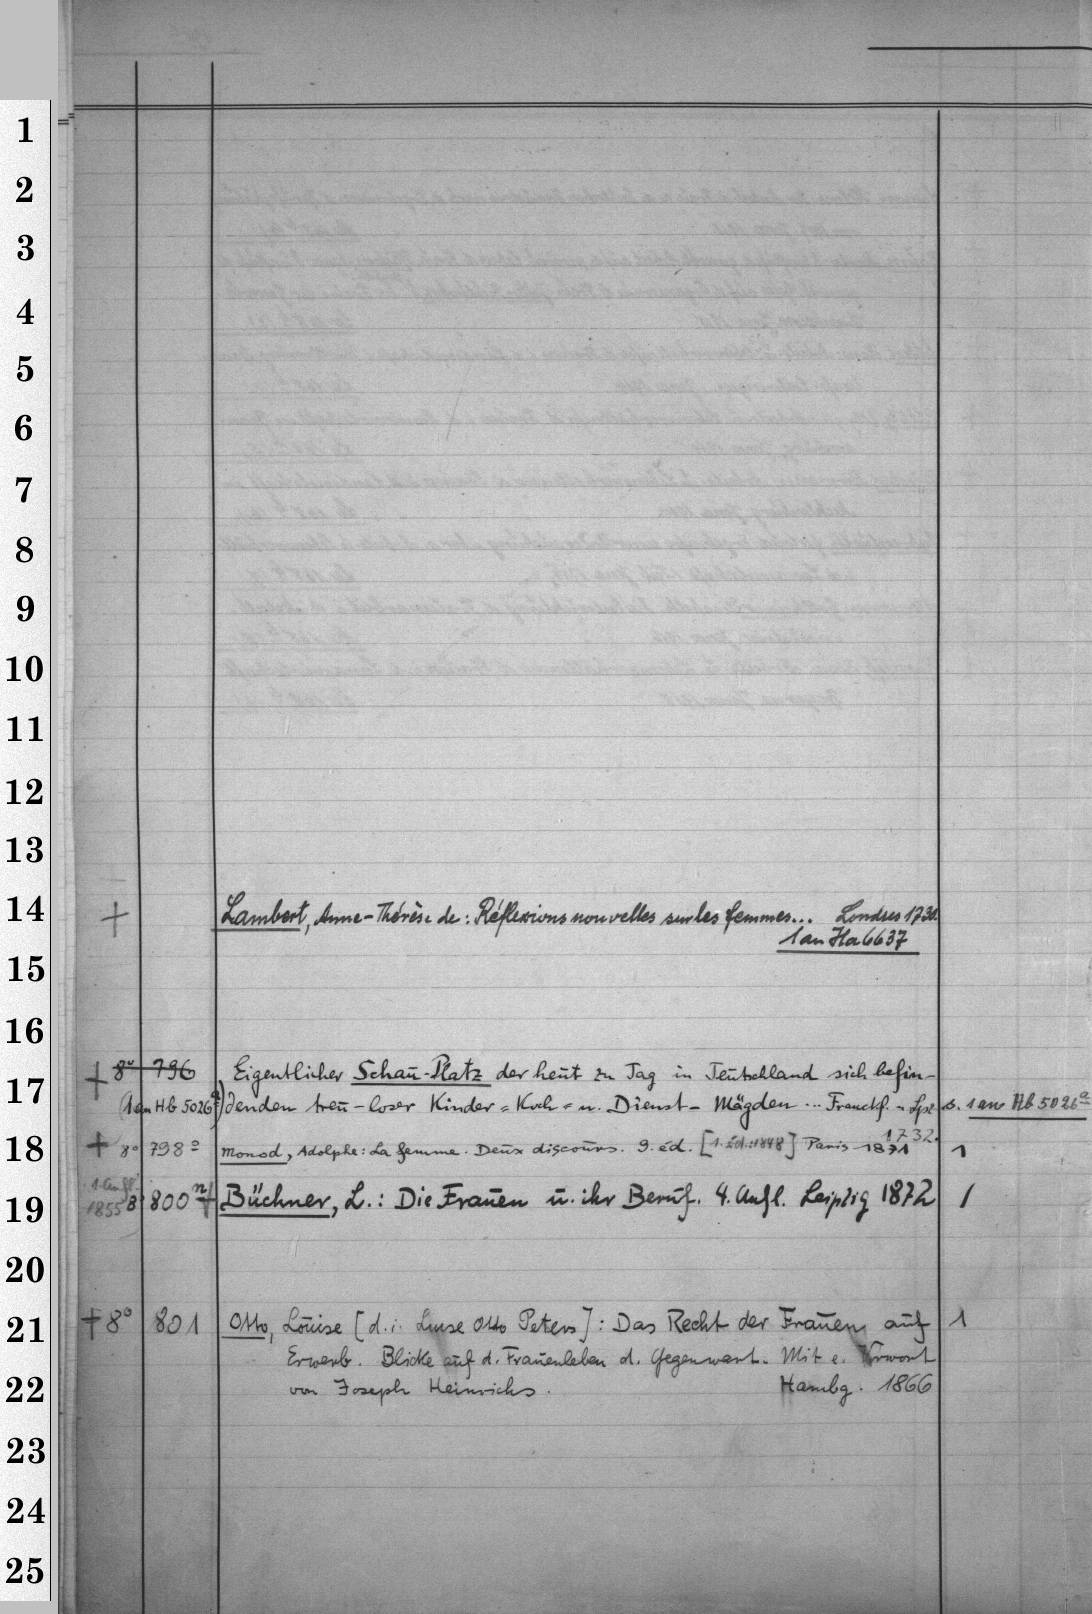 1
2
3
4
5
6
7
8
9
10
11
12
13
14
15
16
17
18
19
20
21
22
23
24
25
+ Lambert, Anne-Thérèse de: Réflexions nouvelles sur les femmes... Londres 1730.
1 an Ha 6637
+ 8° 796 Eigentlicher Schau-Platz der heut zu Tag in Teutschland sich befin-
(1 an Hb 5026a) denden treu-loser Kinder= Koch= u. Dienst- Mägden ... Franckf. u. Lpz. s. 1 an Hb 5026a
1732.
+ 8° 798a Monod, Adolphe: La femme. Deux discours. 9. éd. [1. Éd.: 1848] Paris 1871 1
1. Aufl. 1855 8° 800n + Büchner, L.: Die Frauen u. ihr Beruf. 4. Aufl. Leipzig 1872 1
+ 8° 801 Otto, Louise [d. i. Luise Otto Peters]: Das Recht der Frauen auf 1
Erwerb. Blicke auf d. Frauenleben d. Gegenwart. Mit e. Vorwort
von Joseph Heinrichs. Hambg. 1866